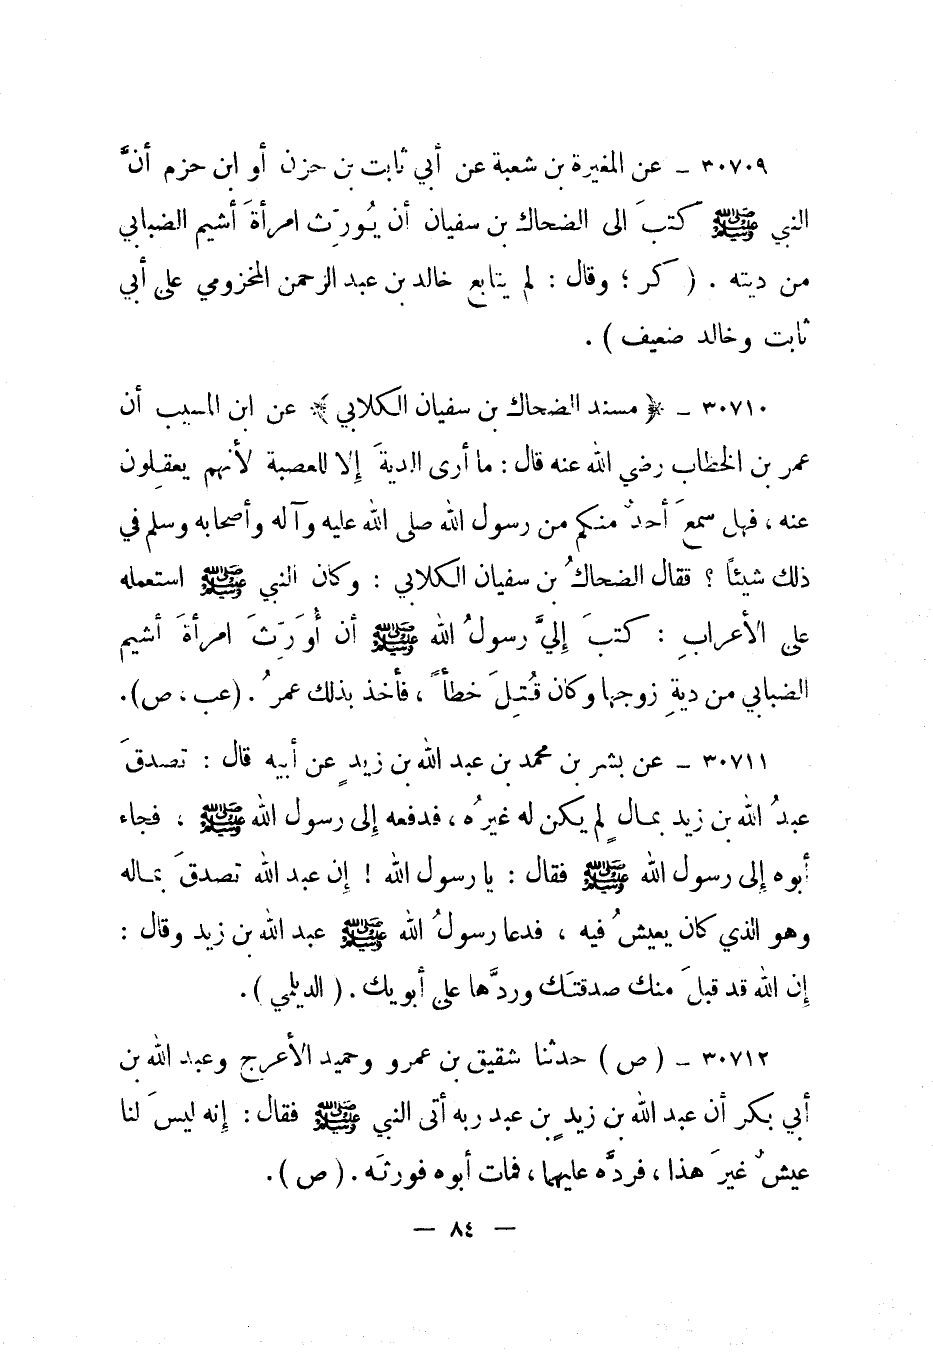 ٣٠٧٠٩ ـ عن المغيرة بن شعبة عن أبي ثابت بن حزن أو ابن حزم أنَّ
النبي ﷺ كتبَ الى الضحاك بن سفيان أن يُورِّث امرأةَ أشيم الضبابي
من ديته . ( كر ؛ وقال : لم يتابع خالد بن عبد الرحمن المخزومي على أبي
ثابت وخالد ضعيف ) .
٣٠٧١٠ ـ ﴿ مسند الضحاك بن سفيان الكلابي ﴾ عن ابن المسيب أن
عمر بن الخطاب رضي الله عنه قال : ما أرى الديةَ إلا للعصبة لأنهم يعقلون
عنه ، فهل سمعَ أحدٌ منكم من رسول الله صلى الله عليه وآله وأصحابه وسلم في
ذلك شيئاً ؟ فقال الضحاكُ بن سفيان الكلابي : وكان النبي ﷺ استعمله
على الأعرابِ : كتبَ إليَّ رسولُ الله ﷺ أن أُوَرِّثَ امرأةَ أشيم
الضبابي من ديةِ زوجها وكان قُتِلَ خطأً ، فأخذ بذلك عمرُ . (عب ، ص).
٣٠٧١١ ـ عن بشر بن محمد بن عبد الله بن زيدٍ عن أبيه قال : تصدقَ
عبدُ الله بن زيد بمالٍ لم يكن له غيرُه ، فدفعه إلى رسول الله ﷺ ، فجاء
أبوه إلى رسول الله ﷺ فقال : يا رسول الله ! إن عبد الله تصدقَ بماله
وهو الذي كان يعيشُ فيه ، فدعا رسولُ الله ﷺ عبد الله بن زيد وقال :
إن الله قد قبلَ منك صدقتَك وردَّها على أبويك . ( الديلمي ) .
٣٠٧١٢ ـ ( ص ) حدثنا شقيق بن عمرو وحميد الأعرج وعبد الله بن
أبي بكر أن عبد الله بن زيدٍ بن عبد ربه أتى النبي ﷺ فقال : إنه ليسَ لنا
عيشٌ غيرَ هذا ، فردَّه عليهما ، فمات أبوه فورثَه . ( ص ) .
— ٨٤ —